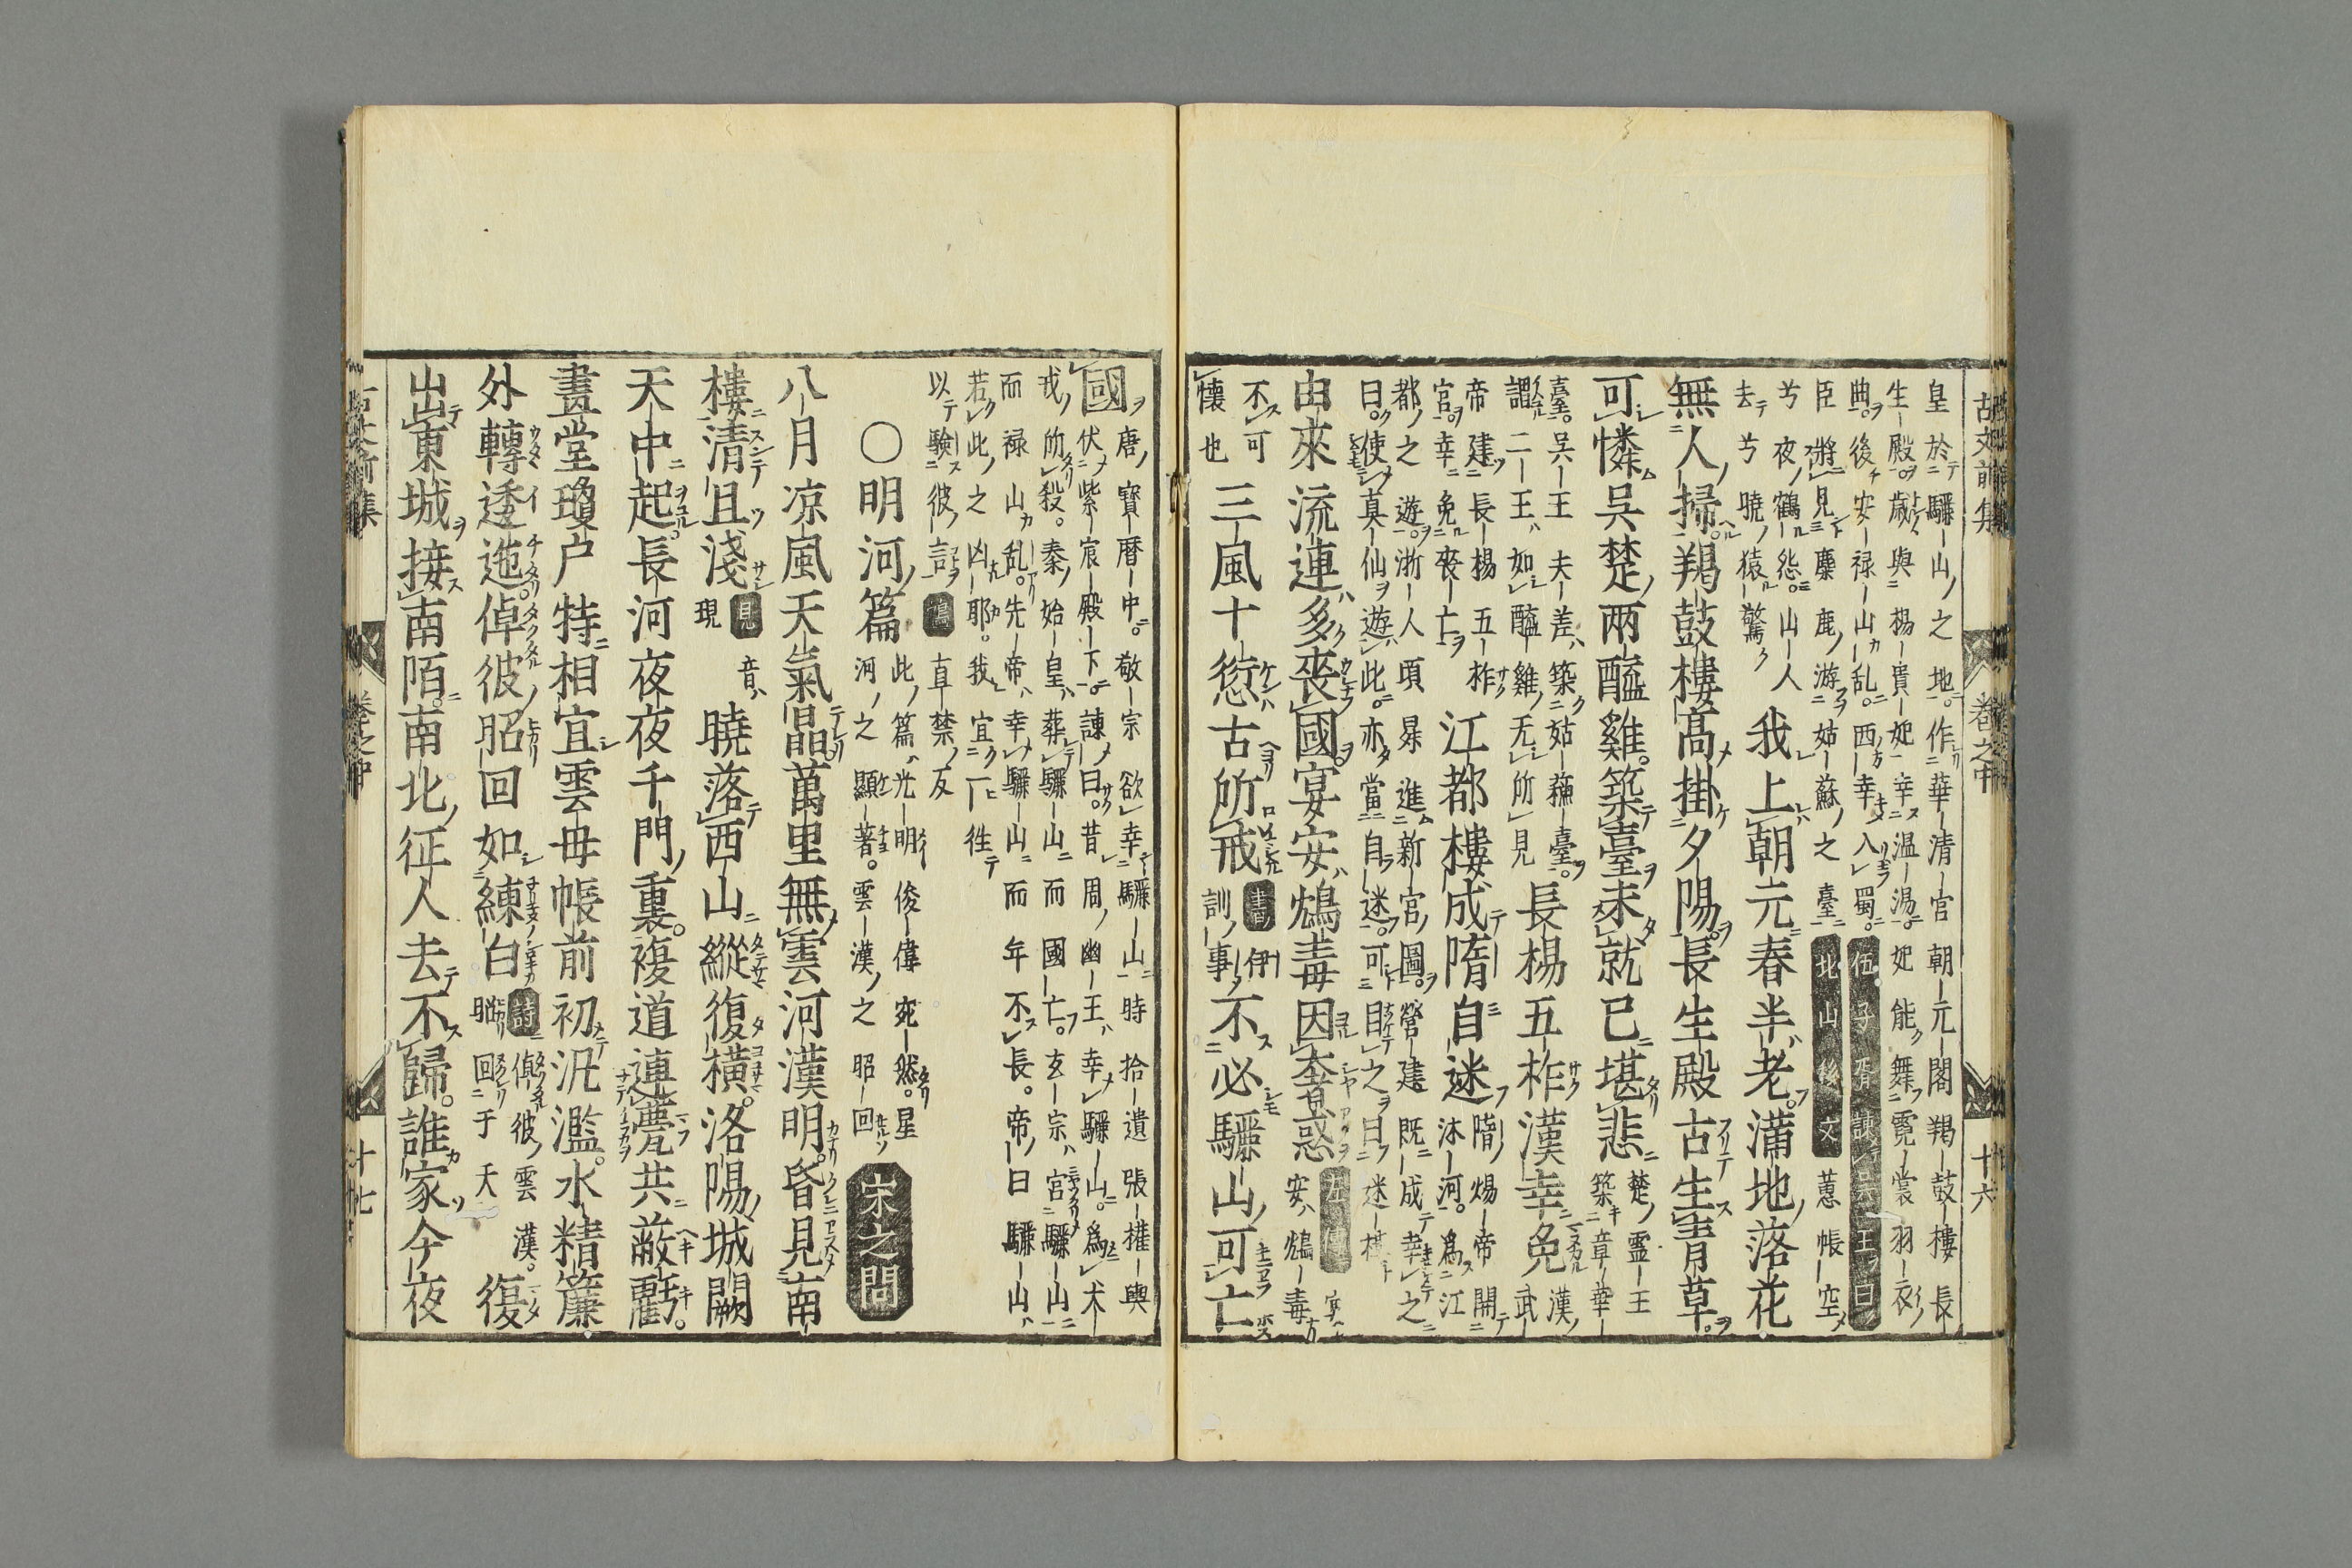 皇於驪山之地作華清宮朝元閣羯鼓樓長
生殿歳與楊貴妃幸温湯妃能舞霓裳羽衣
曲後安禄山乱西幸入蜀伍子胥諫呉王曰
臣將見麋鹿游姑蘇之臺北山移文蕙帳空
兮夜鶴怨山人
去兮曉猿驚我上朝元春半老滿地落花
無人掃羯鼓樓高掛夕陽長生殿古生青草
可憐吳楚兩醯雞築臺未就已堪悲楚霊王
築章華
臺呉王夫差築姑蘓臺
謂二王如醯雞无所見長楊五柞漢幸免漢武
帝建長楊五柞
官幸免喪亡江都樓成隋自迷隋煬帝開
汴河為江
都之遊浙人項昇進新宮圖營建既成幸之
曰使真仙遊此亦當自迷可目之曰迷樓
由來流連多喪國宴安鴆毒因奢惑左傳
宴安鴆毒
不可
懷也三風十愆古所戒書伊
訓事不必驪山可亡
國唐寳暦中敬宗欲幸驪山時拾遺張權輿
伏紫宸殿下諫曰昔周幽王幸驪山為犬
戎所殺秦始皇葬驪山而國亡玄宗宮驪山
而禄山乱先帝幸驪山而年不長帝曰驪山
若此之凶耶我宜一徃
以驗彼言鴆直禁反
〇明河篇此篇光明俊偉宛然星
河之顯著雲漢之昭回宋之問
八月凉風天氣晶萬里無雲河漢明昏見南
樓清且淺見音
現曉落西山縱復橫洛陽城闕
天中起長河夜夜千門裏複道連甍共蔽虧
畫堂瓊户特相宜雲母帳前初汎濫水精簾
外轉逶迤倬彼昭回如練白詩倬彼雲漢
昭回于天復
出東城接南陌南北征人去不歸誰家今夜
古文前集
卷之中
十六
古文前集
卷之中
十七